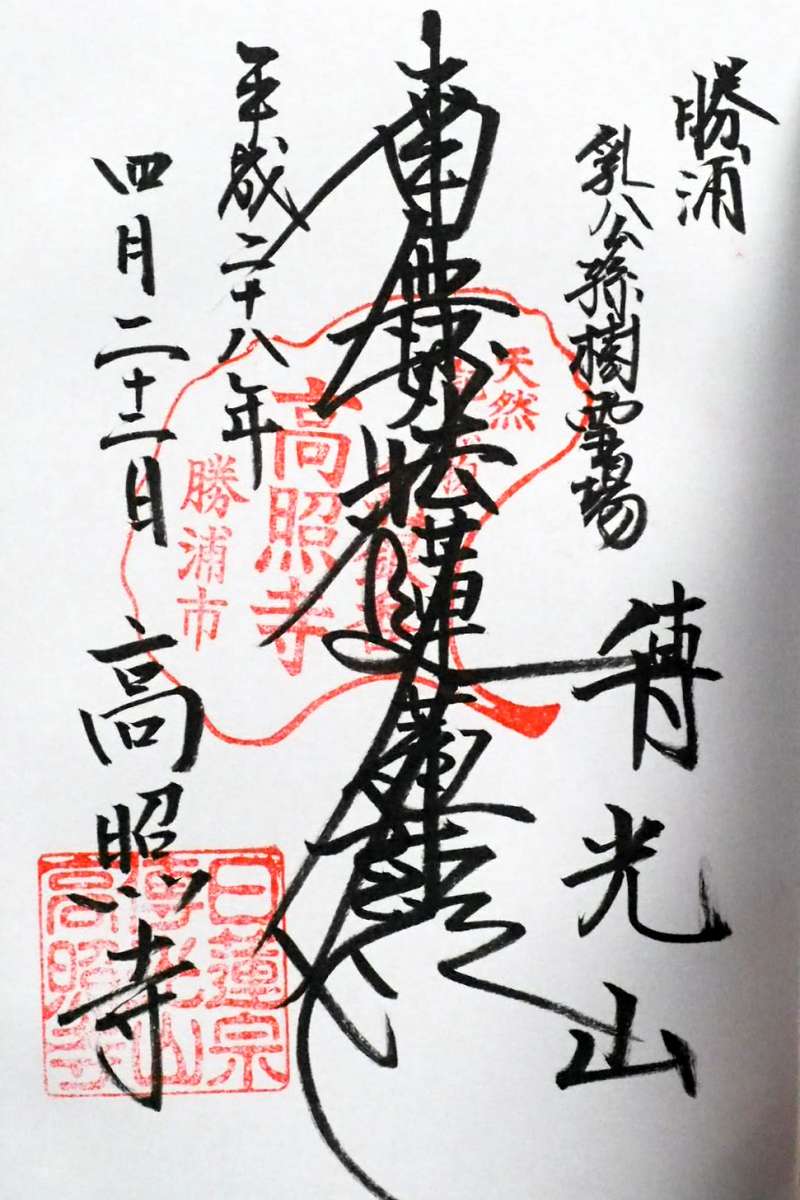 勝浦
乳公孫樹霊場
傳光山
南無妙法蓮華経
平成二十八年
四月二十二日
高照寺
天然
高照寺
勝浦市
日蓮宗
傳光山
高照寺